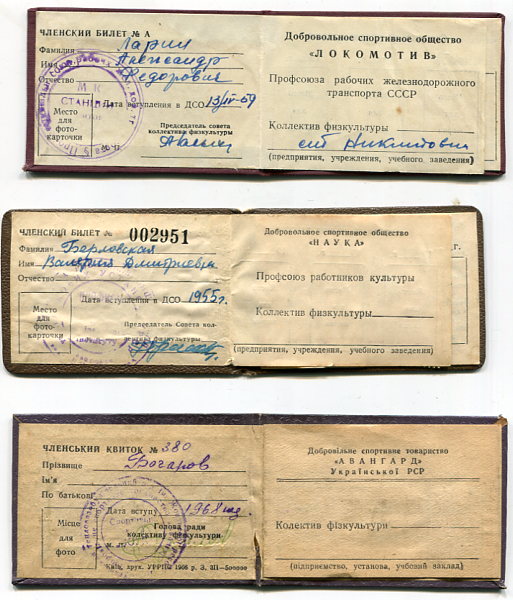 ЧЛЕНСКИЙ БИЛЕТ № А
Фамилия Ларин
Имя Александр
Отчество Федорович
МК
Дата вступления в ДСО 13/IV-59
Место
для
фото-
карточки
Председатель совета
коллектива физкультуры
Добровольное спортивное общество
«ЛОКОМОТИВ»
Профсоюза рабочих железнодорожного
транспорта СССР
Коллектив физкультуры
(предприятия, учреждения, учебного заведения)
ЧЛЕНСКИЙ БИЛЕТ № 002951
Фамилия Берловская
Имя Валерия Дмитриевна
Отчество
Дата вступления в ДСО 1955г.
Место
для
фото-
карточки
Председатель Совета кол-
лектива физкультуры
Добровольное спортивное общество
«НАУКА»
Профсоюз работников культуры
Коллектив физкультуры
(предприятия, учреждения, учебного заведения)
г.
ЧЛЕНСЬКИЙ КВИТОК № 380
Прізвище Бочаров
Ім'я
По батькові
Дата вступу 1968
Місце
для
фото
Голова ради
колективу фізкультури
Київ, друк. УРРПС 1966 р. З. 311—500000
Добровільне спортивне товариство
«АВАНГАРД»
Української РСР
Колектив фізкультури
(підприємство, установа, учбовий заклад)